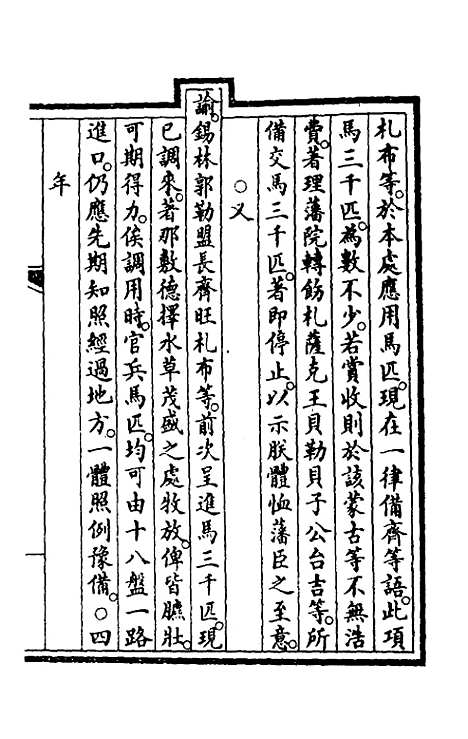 札布等。於本處應用馬匹。現在一律備齊等語。此項
馬三千匹。為數不少。若賞收則於該蒙古等不無浩
費。著理藩院轉飭札薩克王貝勒貝子公台吉等。所
備交馬三千匹。著即停止。以示朕體恤藩臣之至意。
○又
諭。錫林郭勒盟長齊旺札布等。前次呈進馬三千匹。現
已調來。著那敷德擇水草茂盛之處牧放。俾皆臕壯。
可期得力。俟調用時。官兵馬匹。均可由十八盤一路
進口。仍應先期知照經過地方。一體照例豫備。○四
年